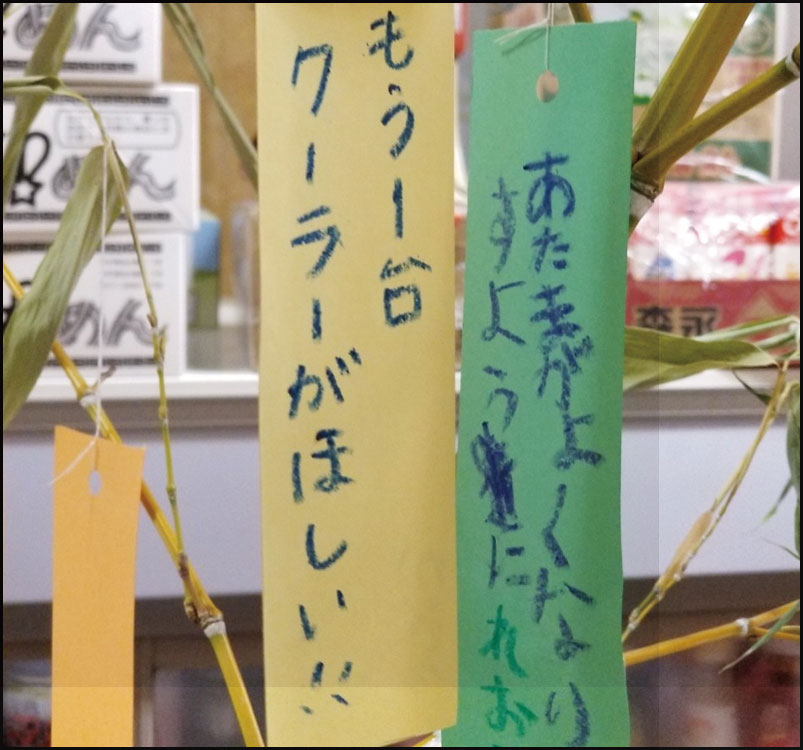 あたまがよくなり
すように
れお
もう一台
クーラーがほしい!!
森永
めん
めん
めん